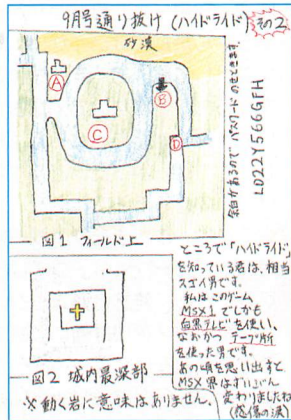 9月号通り抜け(ハイドライド)その2
砂漠
A
B
C
D
余白があるのでパスワードのせときます。
LO22Y566GFH
図1 フィールド上
図2 城内最深部
※動く岩に意味はありません。
ところで「ハイドライド」
を知っている君は、相当
スゴイ男です。
私はこのゲーム
MSX1でしかも
白黒テレビを使い、
なおかつテープ版
を使った男です。
あの頃を思い出すと
MSX界はずいぶん
変わりましたね
(感傷の涙)